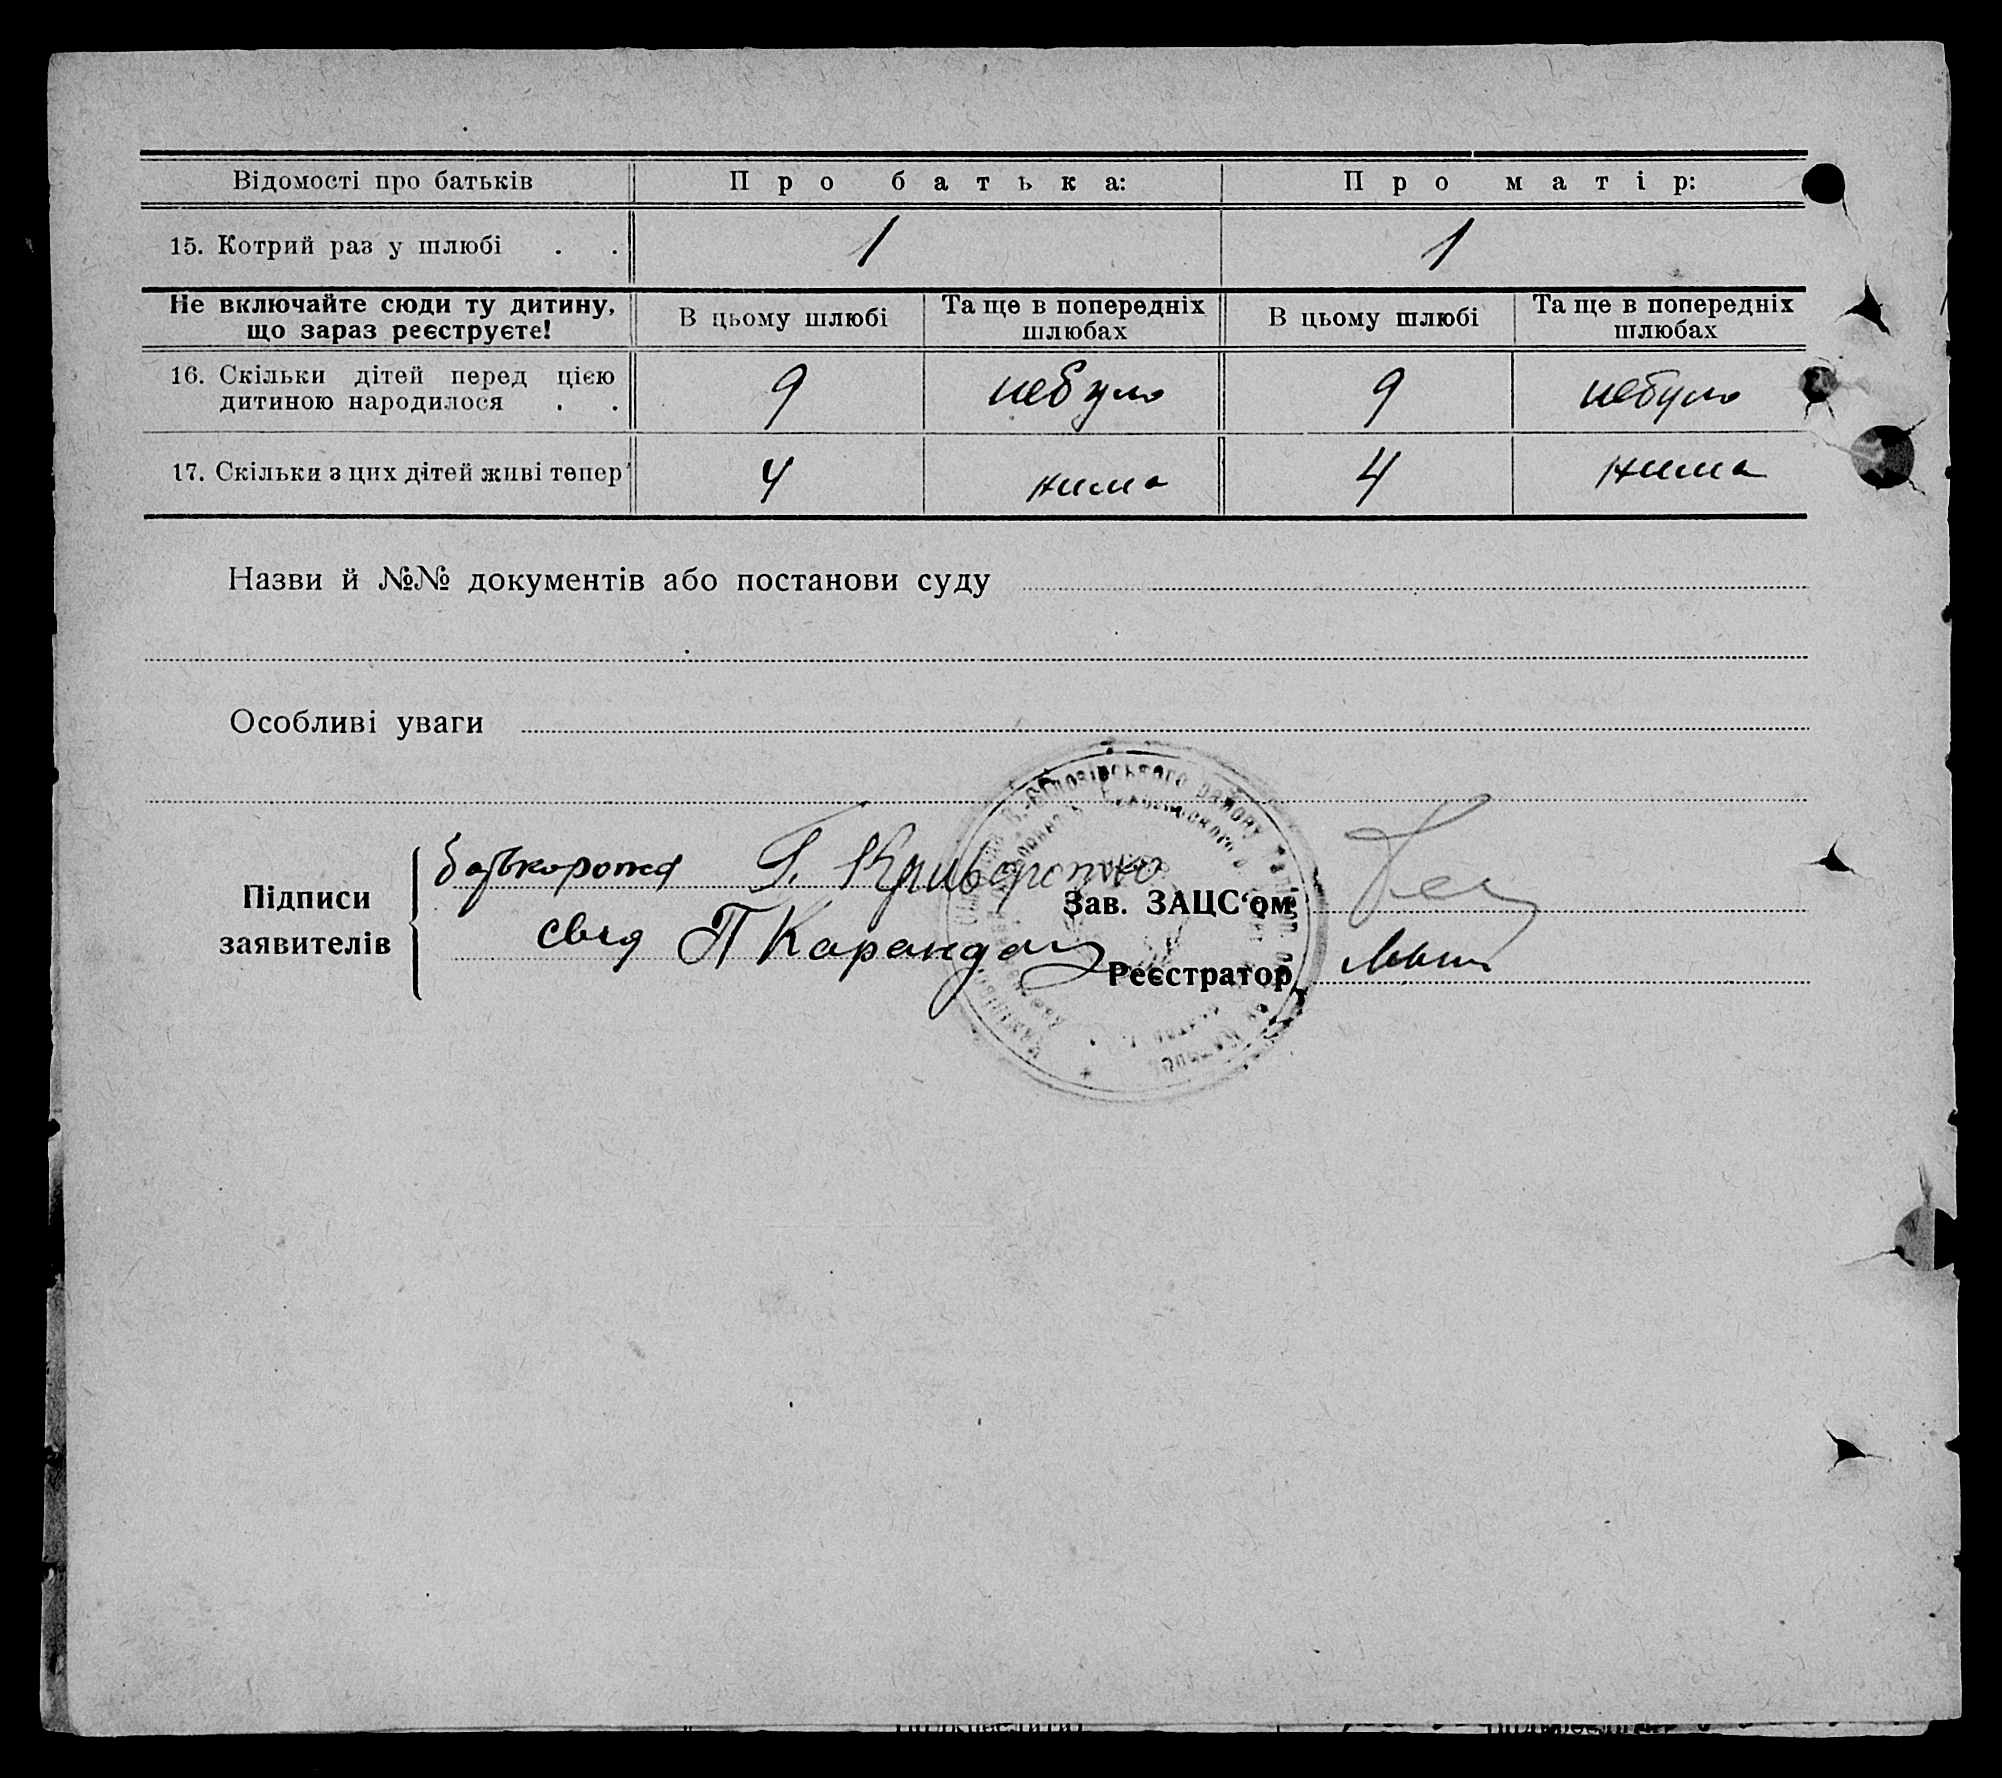 Відомості про батьків Про батька: Про матір:
15. Котрий раз у шлюбі . . 1 1
Не включайте сюди ту дитину, що зараз реєструєте! В цьому шлюбі Та ще в попередніх шлюбах В цьому шлюбі Та ще в попередніх шлюбах
16. Скільки дітей перед цією
дитиною народилося . . 9 небуло 9 небуло
17. Скільки з цих дітей живі тепер 4 нима 4 нима
Назви й №№ документів або постанови суду
Особливі уваги
Підписи
заявителів
Г. Криворотко
П Карандаш
Зав. ЗАЦС‘ом
Реєстратор
району